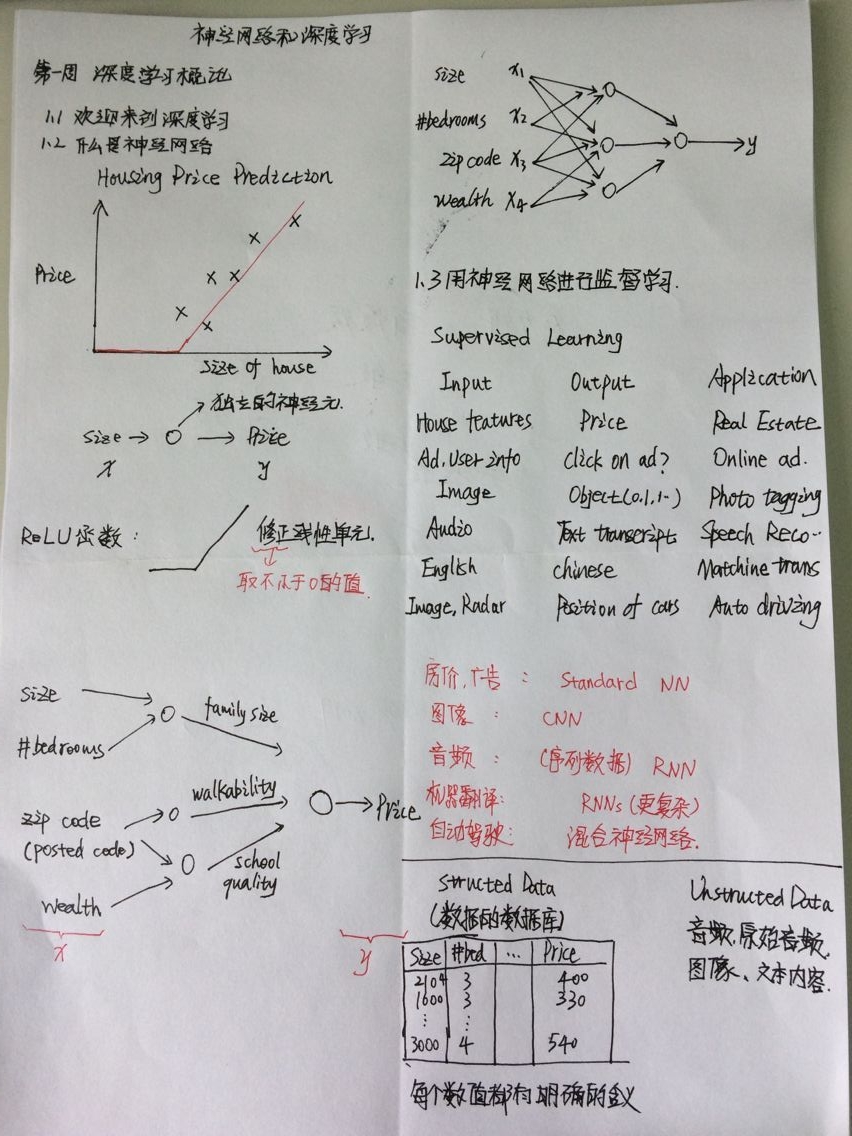 神经网络和深度学习
第一周 深度学习概论
1.1 欢迎来到深度学习
1.2 什么是神经网络
Housing Price Prediction
Price
Size of house
独立的神经元.
size → ○ → Price
x y
ReLU函数: 修正线性单元.
取不小于0的值.
size
family size
#bedrooms
walkability
zip code
Price
(posted code)
school
quality
wealth
x y
size x1
#bedrooms x2
y
zip code x3
wealth x4
1.3 用神经网络进行监督学习.
Supervised Learning
Input Output Application
House features Price Real Estate
Ad, User info click on ad? Online ad.
Image Object(0,1,1..) Photo tagging
Audio Text transcript Speech Reco..
English chinese Matchine trans
Image, Radar Position of cars Auto driving
房价,广告: Standard NN
图像: CNN
音频: (序列数据) RNN
机器翻译: RNNs (更复杂)
自动驾驶: 混合神经网络.
Structed Data
(数据的数据库)
Size #bed ... Price
2104 3 400
1600 3 330
⋮ ⋮
3000 4 540
每个数值都有明确的含义
Unstructed Data
音频,原始音频,
图像、文本内容.